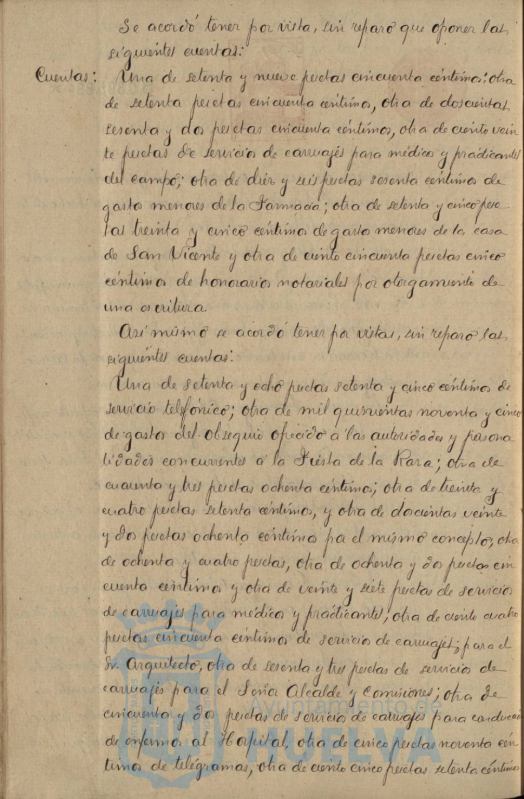 Se acordó tener por vista, sin reparo que oponer las
siguientes cuentas:
Cuentas: Una de setenta y nueve pesetas cincuenta céntimos; otra
de setenta pesetas cincuenta céntimos, otra de doscientas
sesenta y dos pesetas cincuenta céntimos, otra de ciento vein
te pesetas de servicio de carruajes para médico y practicantes
del campo; otra de diez y seis pesetas sesenta céntimos de
gastos menores de la Farmacia; otra de setenta y cinco pese
tas treinta y cinco céntimos de gastos menores de la casa
de San Vicente y otra de ciento cincuenta pesetas cinco
céntimos de honorarios notariales por otorgamiento de
una escritura
Asi mismo se acordó tener por vistas, sin reparo las
siguientes cuentas:
Una de setenta y ocho pesetas setenta y cinco céntimos de
servicio telefónico; otra de mil quinientas noventa y cinco
de gastos del obsequio ofrecido a las autoridades y persona
lidades concurrentes a la Fiesta de la Raza; otra de
cuarenta y tres pesetas ochenta céntimos; otra de treinta y
cuatro pesetas setenta céntimos, y otra de docientas veinte
y dos pesetas ochenta céntimos pa el mismo concepto; otra
de ochenta y cuatro pesetas, otra de ochenta y dos pesetas cin
cuenta céntimos y otra de veinte y siete pesetas de servicio
de carruajes para médico y practicantes; otra de ciento cuatro
pesetas cincuenta céntimos de servicio de carruajes; para el
Sr. Arquitecto, otra de sesenta y tres pesetas de servicio de
carruajes para el Señor Alcalde y Comisiones; otra de
cincuenta y dos pesetas de servicio de carruajes para conducción
de enfermos al Hospital, otra de cinco pesetas noventa cén
timos de telegramas, otra de ciento cinco pesetas setenta céntimos
Ayuntamiento de
HUELVA